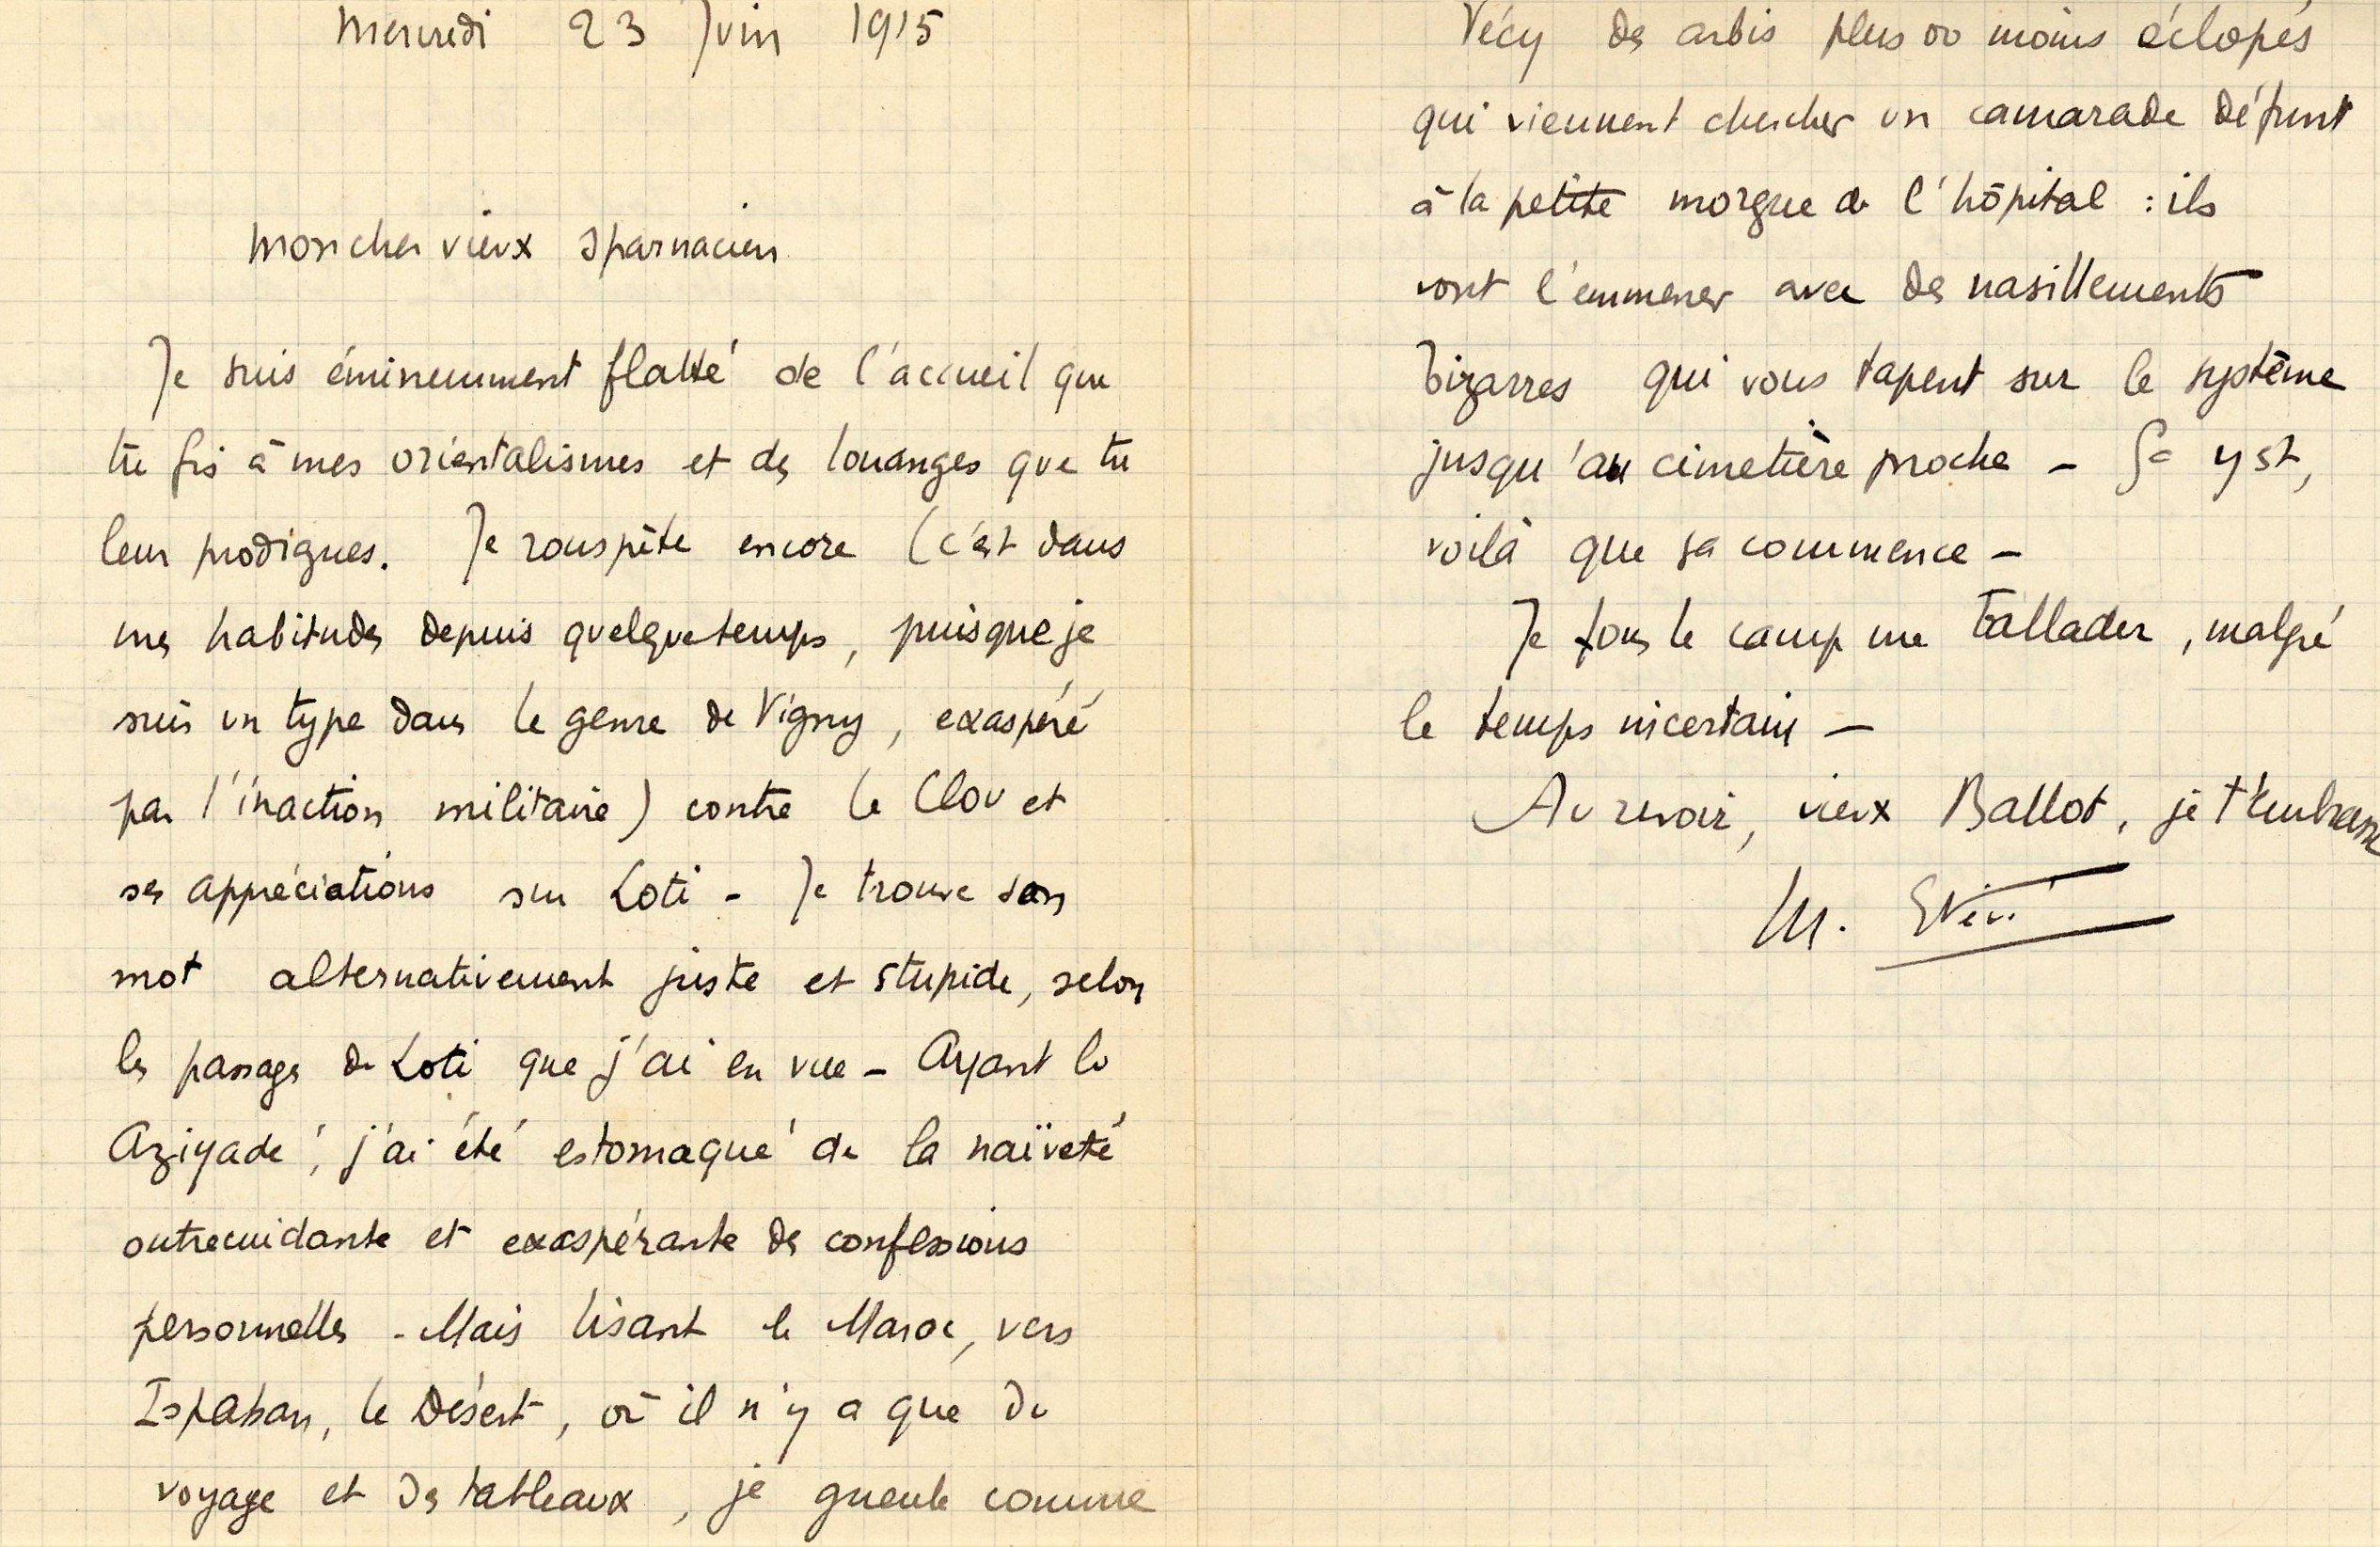 Mercredi 23 Juin 1915
Mon cher vieux sparnacien
Je suis éminemment flatté de l'accueil que
tu fis à mes orientalismes et des louanges que tu
leur prodigues. Je rouspète encore (c'est dans
mes habitudes depuis quelque temps, puisque je
suis un type dans le genre de Vigny, exaspéré
par l'inaction militaire) contre le Clou et
ses appréciations sur Loti - Je trouve son
mot alternativement juste et stupide, selon
les passages de Loti que j'ai en vue - Ayant lu
Aziyadé, j'ai été estomaqué de la naïveté
outrecuidante et exaspérante des confessions
personnelles - Mais lisant le Maroc, vers
Ispahan, le Désert, où il n'y a que du
voyage et des tableaux, je gueule comme
Vécy des arbis plus ou moins éclopés
qui viennent chercher un camarade défunt
à la petite morgue de l'hôpital : ils
vont l'emmener avec des nasillements
bizarres qui vous tapent sur le système
jusqu'au cimetière proche - Ça y st,
voilà que ça commence -
Je fous le camp me ballader, malgré
le temps incertain -
Au revoir, vieux Ballot, je t'embrasse
M.